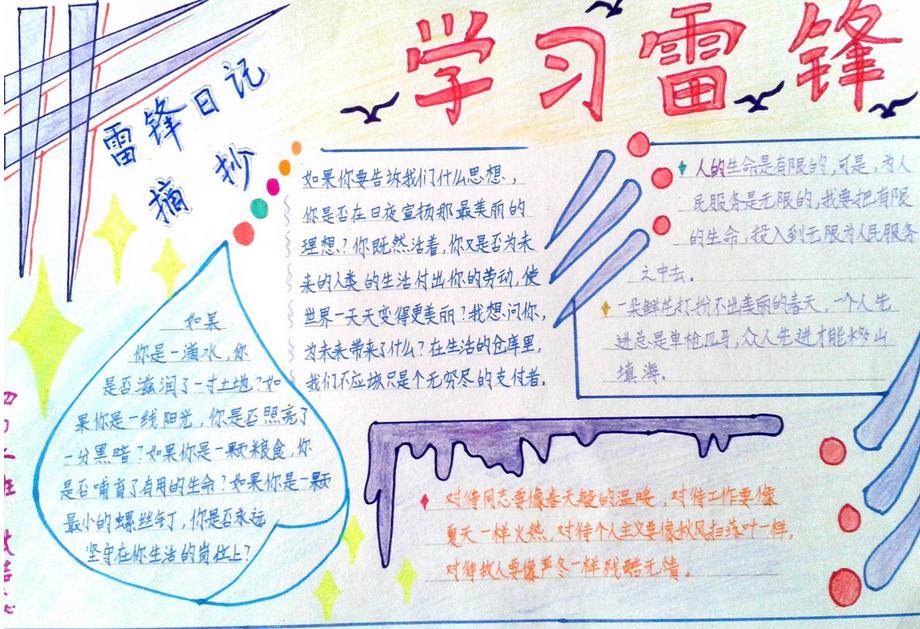 学习雷锋
雷锋日记
摘抄
如果
你是一滴水，你
是否滋润了一寸土地？如
果你是一线阳光，你是否照亮了
一分黑暗？如果你是一颗粮食，你
是否哺育了有用的生命？如果你是一颗
最小的螺丝钉，你是否永远
坚守在你生活的岗位上？
如果你要告诉我们什么思想，
你是否在日夜宣扬那最美丽的
理想？你既然活着，你又是否为未
来的人类的生活付出你的劳动，使
世界一天天变得更美丽？我想问你，
为未来带来了什么？在生活的仓库里，
我们不应该只是个无穷尽的支付者。
人的生命是有限的，可是，为人
民服务是无限的，我要把有限
的生命，投入到无限为人民服务
之中去。
一朵鲜花打扮不出美丽的春天，一个人先
进总是单枪匹马，众人先进才能移山
填海。
对待同志要像春天般的温暖，对待工作要像
夏天一样火热，对待个人主义要像秋风扫落叶一样，
对待敌人要像严冬一样残酷无情。